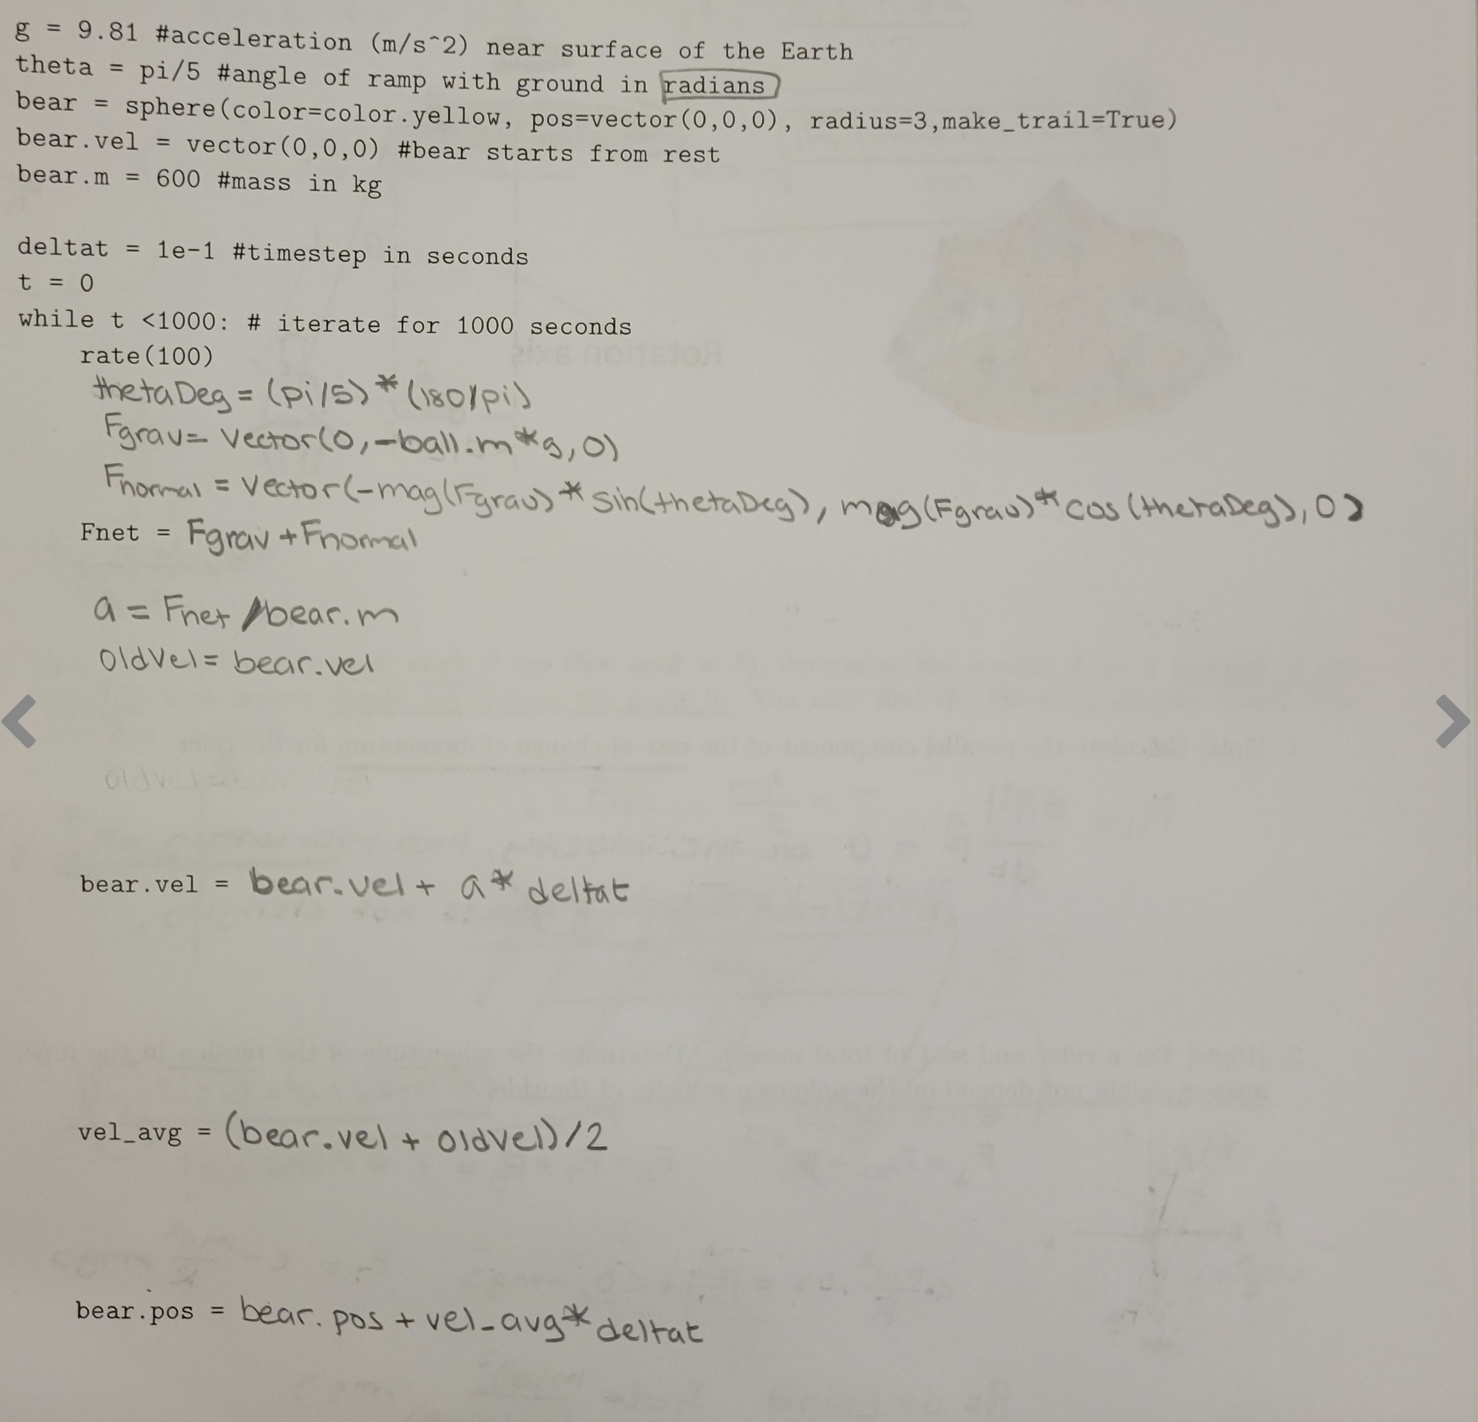 g = 9.81 #acceleration (m/s^2) near surface of the Earth
theta = pi/5 #angle of ramp with ground in radians
bear = sphere(color=color.yellow, pos=vector(0,0,0), radius=3,make_trail=True)
bear.vel = vector(0,0,0) #bear starts from rest
bear.m = 600 #mass in kg
deltat = 1e-1 #timestep in seconds
t = 0
while t <1000: # iterate for 1000 seconds
rate(100)
thetaDeg = (pi/5)*(180/pi)
Fgrav= vector(0,-ball.m*g,0)
Fnormal = vector(-mag(Fgrav)*sin(thetaDeg), mag(Fgrav)*cos(thetaDeg),0)
Fnet = Fgrav+Fnormal
a = Fnet/bear.m
oldVel= bear.vel
oldvel=
bear.vel = bear.vel + a*deltat
vel_avg = (bear.vel + oldvel)/2
bear.pos = bear.pos + vel_avg*deltat